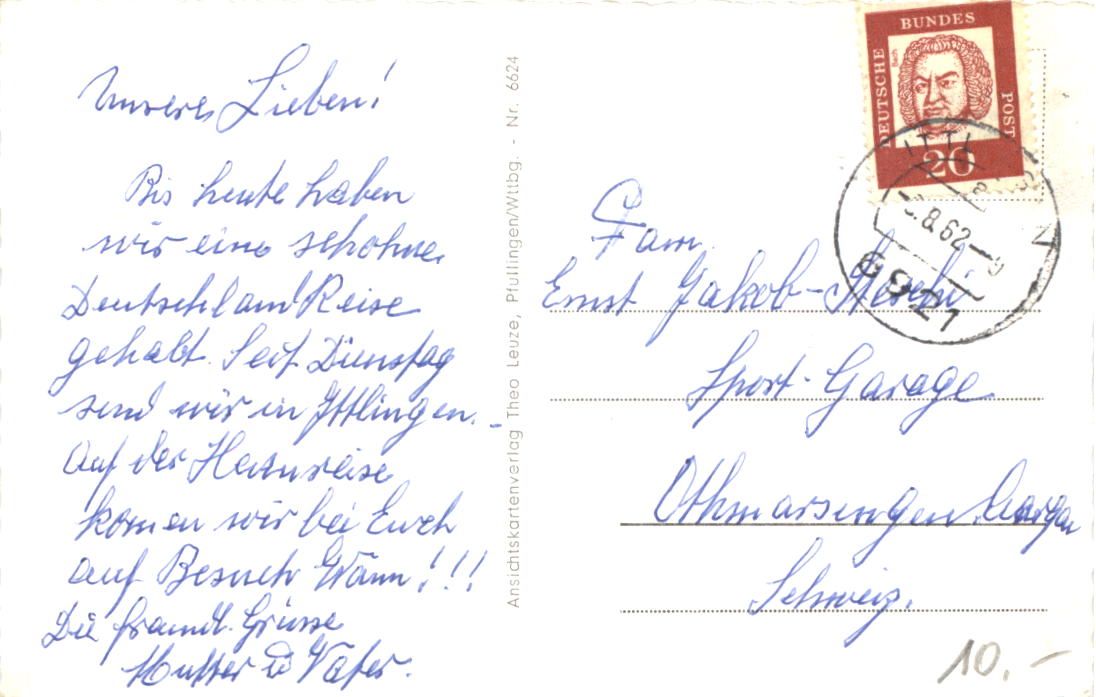 Unsere Lieben!
Bis heute haben
wir eine schöhne
Deutschland Reise
gehabt. Seit Dienstag
send wir in Ittlingen.
Auf der Heimreise
komen wir bei Euch
auf Besuch Wann!!!
Die freundl. Grüsse
Mutter u Vater.
Ansichtskartenverlag Theo Leuze, Pfullingen/Wttbg. - Nr. 6624
DEUTSCHE BUNDES POST
Bach
20
ITTL
.8.62
6921
Fam.
Ernst Jakob-
Sport-Garage
Othmarsingen Aargau
Schweiz.
10.-